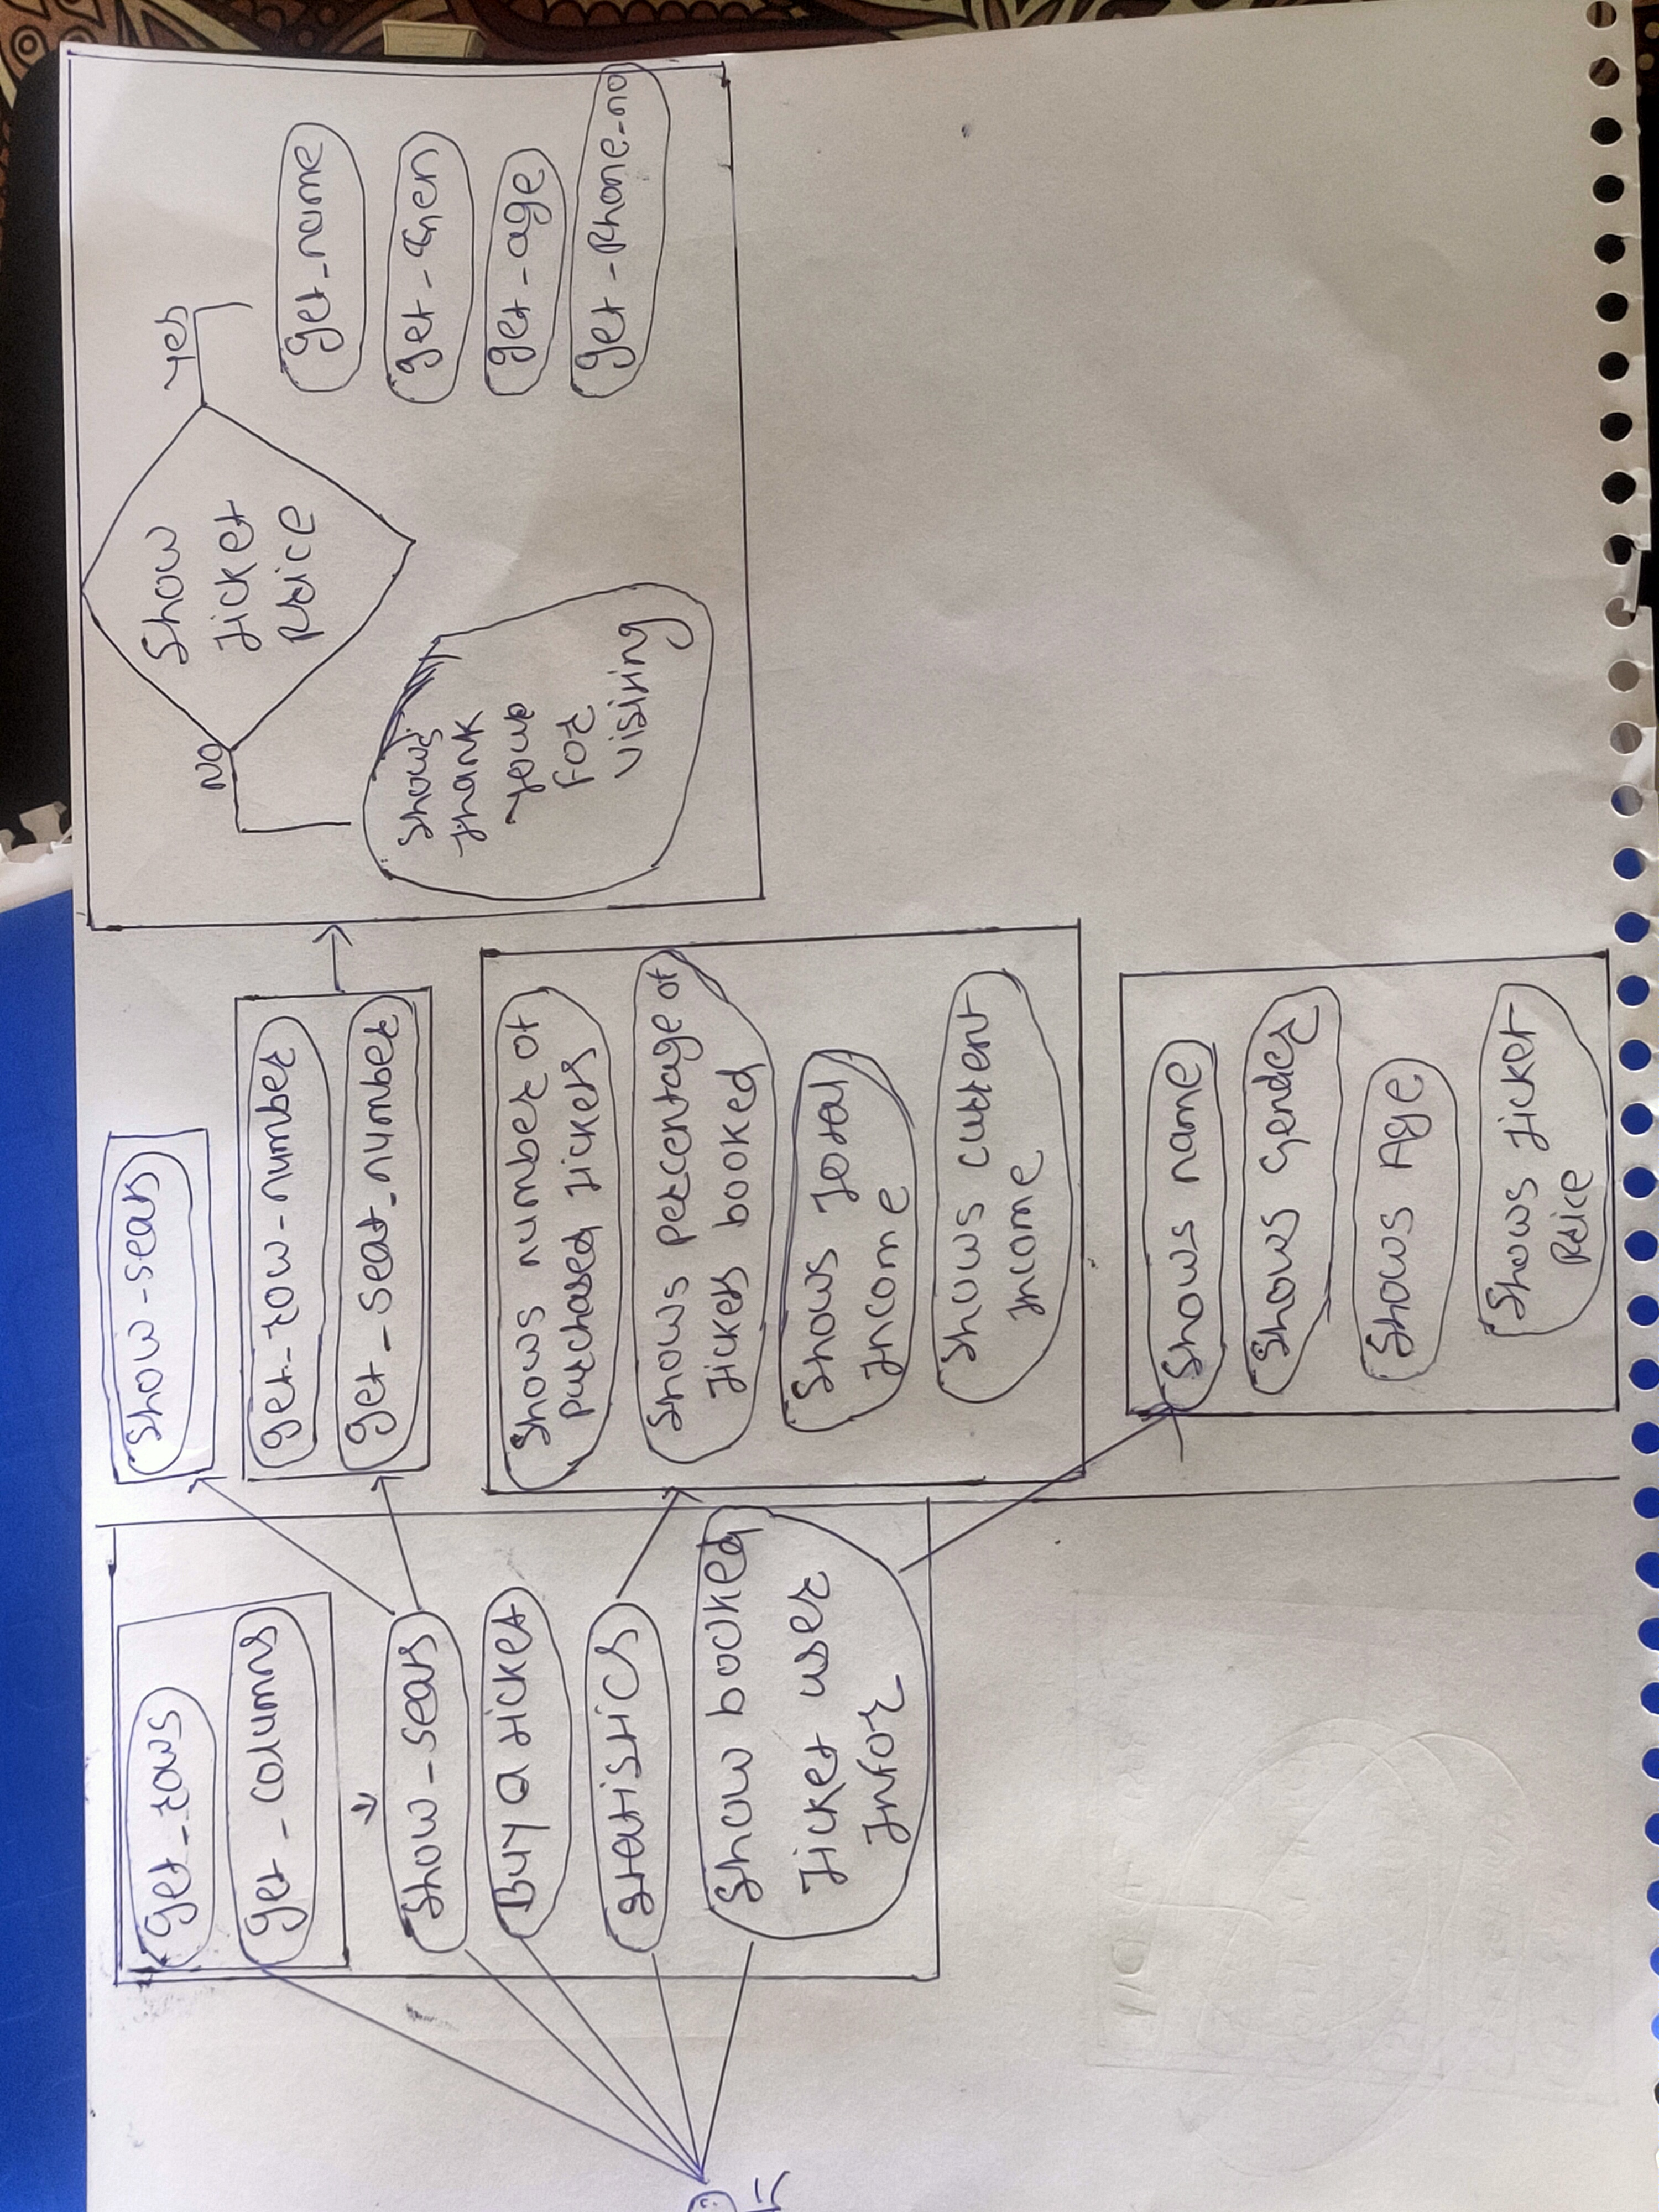 get_rows
get_columns
show_seats
Buy a ticket
statistics
Show booked
ticket user
Infor
show_seats
get_row_number
get_seat_number
Shows number of
purchased tickets
Shows percentage of
tickets booked
Shows total
Income
Shows current
Income
Shows name
Shows Gender
Shows Age
Shows ticket
Price
Show
ticket
Price
No
Yes
Shows
thank
for
visiting
get_name
get_age
get_Phone_no